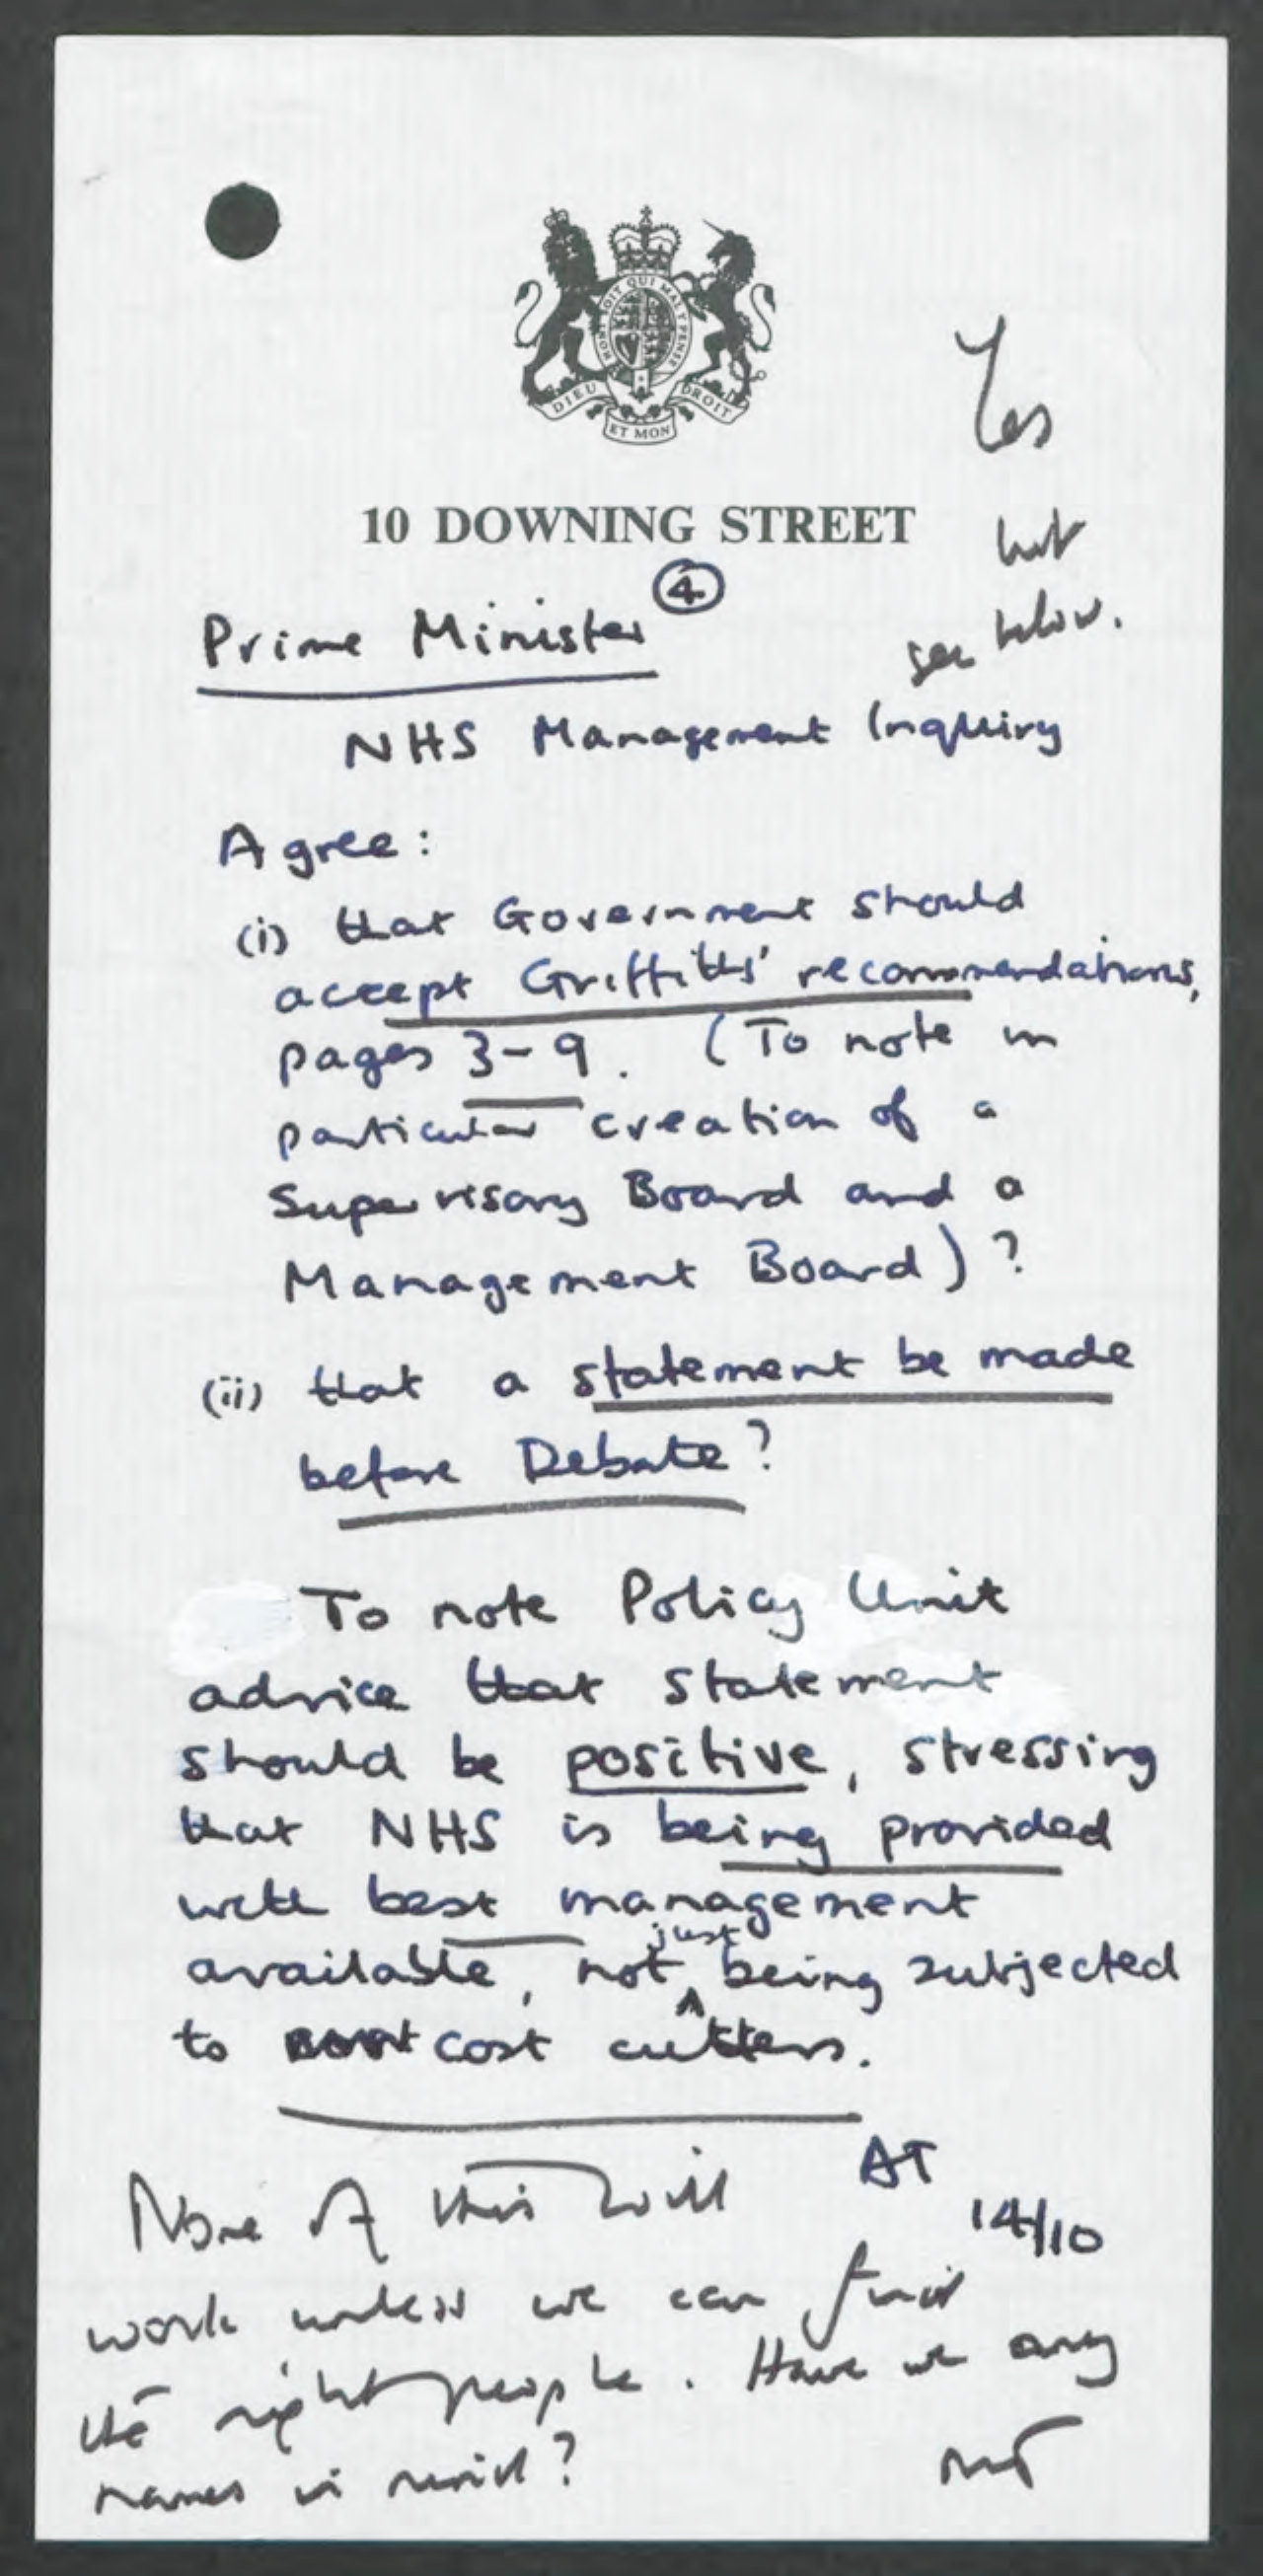 HONI SOIT QUI MAL Y PENSE
DIEU ET MON DROIT
Yes
10 DOWNING STREET
but
see below.
Prime Minister ④
NHS Management Inquiry
Agree:
(i) that Government should
accept Griffiths' recommendations,
pages 3-9. (To note in
particular creation of a
Supervisory Board and a
Management Board)?
(ii) that a statement be made
before Debate?
To note Policy Unit
advice that statement
should be positive, stressing
that NHS is being provided
with best management
available, not just being subjected
to cost cutters.
AT
14/10
None of this will
work unless we can find
the right people. Have we any
names in mind?
MT